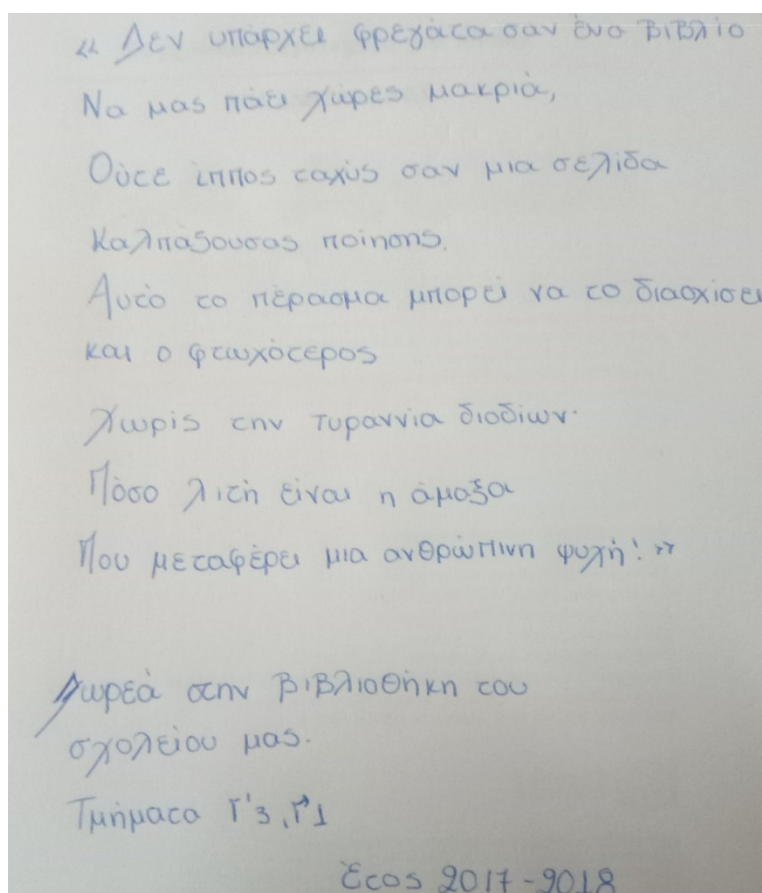 « Δεν υπάρχει φρεγάτα σαν ένα βιβλίο
Να μας πάει χώρες μακριά,
Ούτε ίππος ταχύς σαν μια σελίδα
Καλπάζουσας ποίησης.
Αυτό το πέρασμα μπορεί να το διασχίσει
και ο φτωχότερος
Χωρίς την τυραννία διοδίων·
Πόσο λιτή είναι η άμαξα
Που μεταφέρει μια ανθρώπινη ψυχή! »
Δωρεά στην βιβλιοθήκη του
σχολείου μας.
Τμήματα Γ'3, Γ'1
Έτος 2017-2018